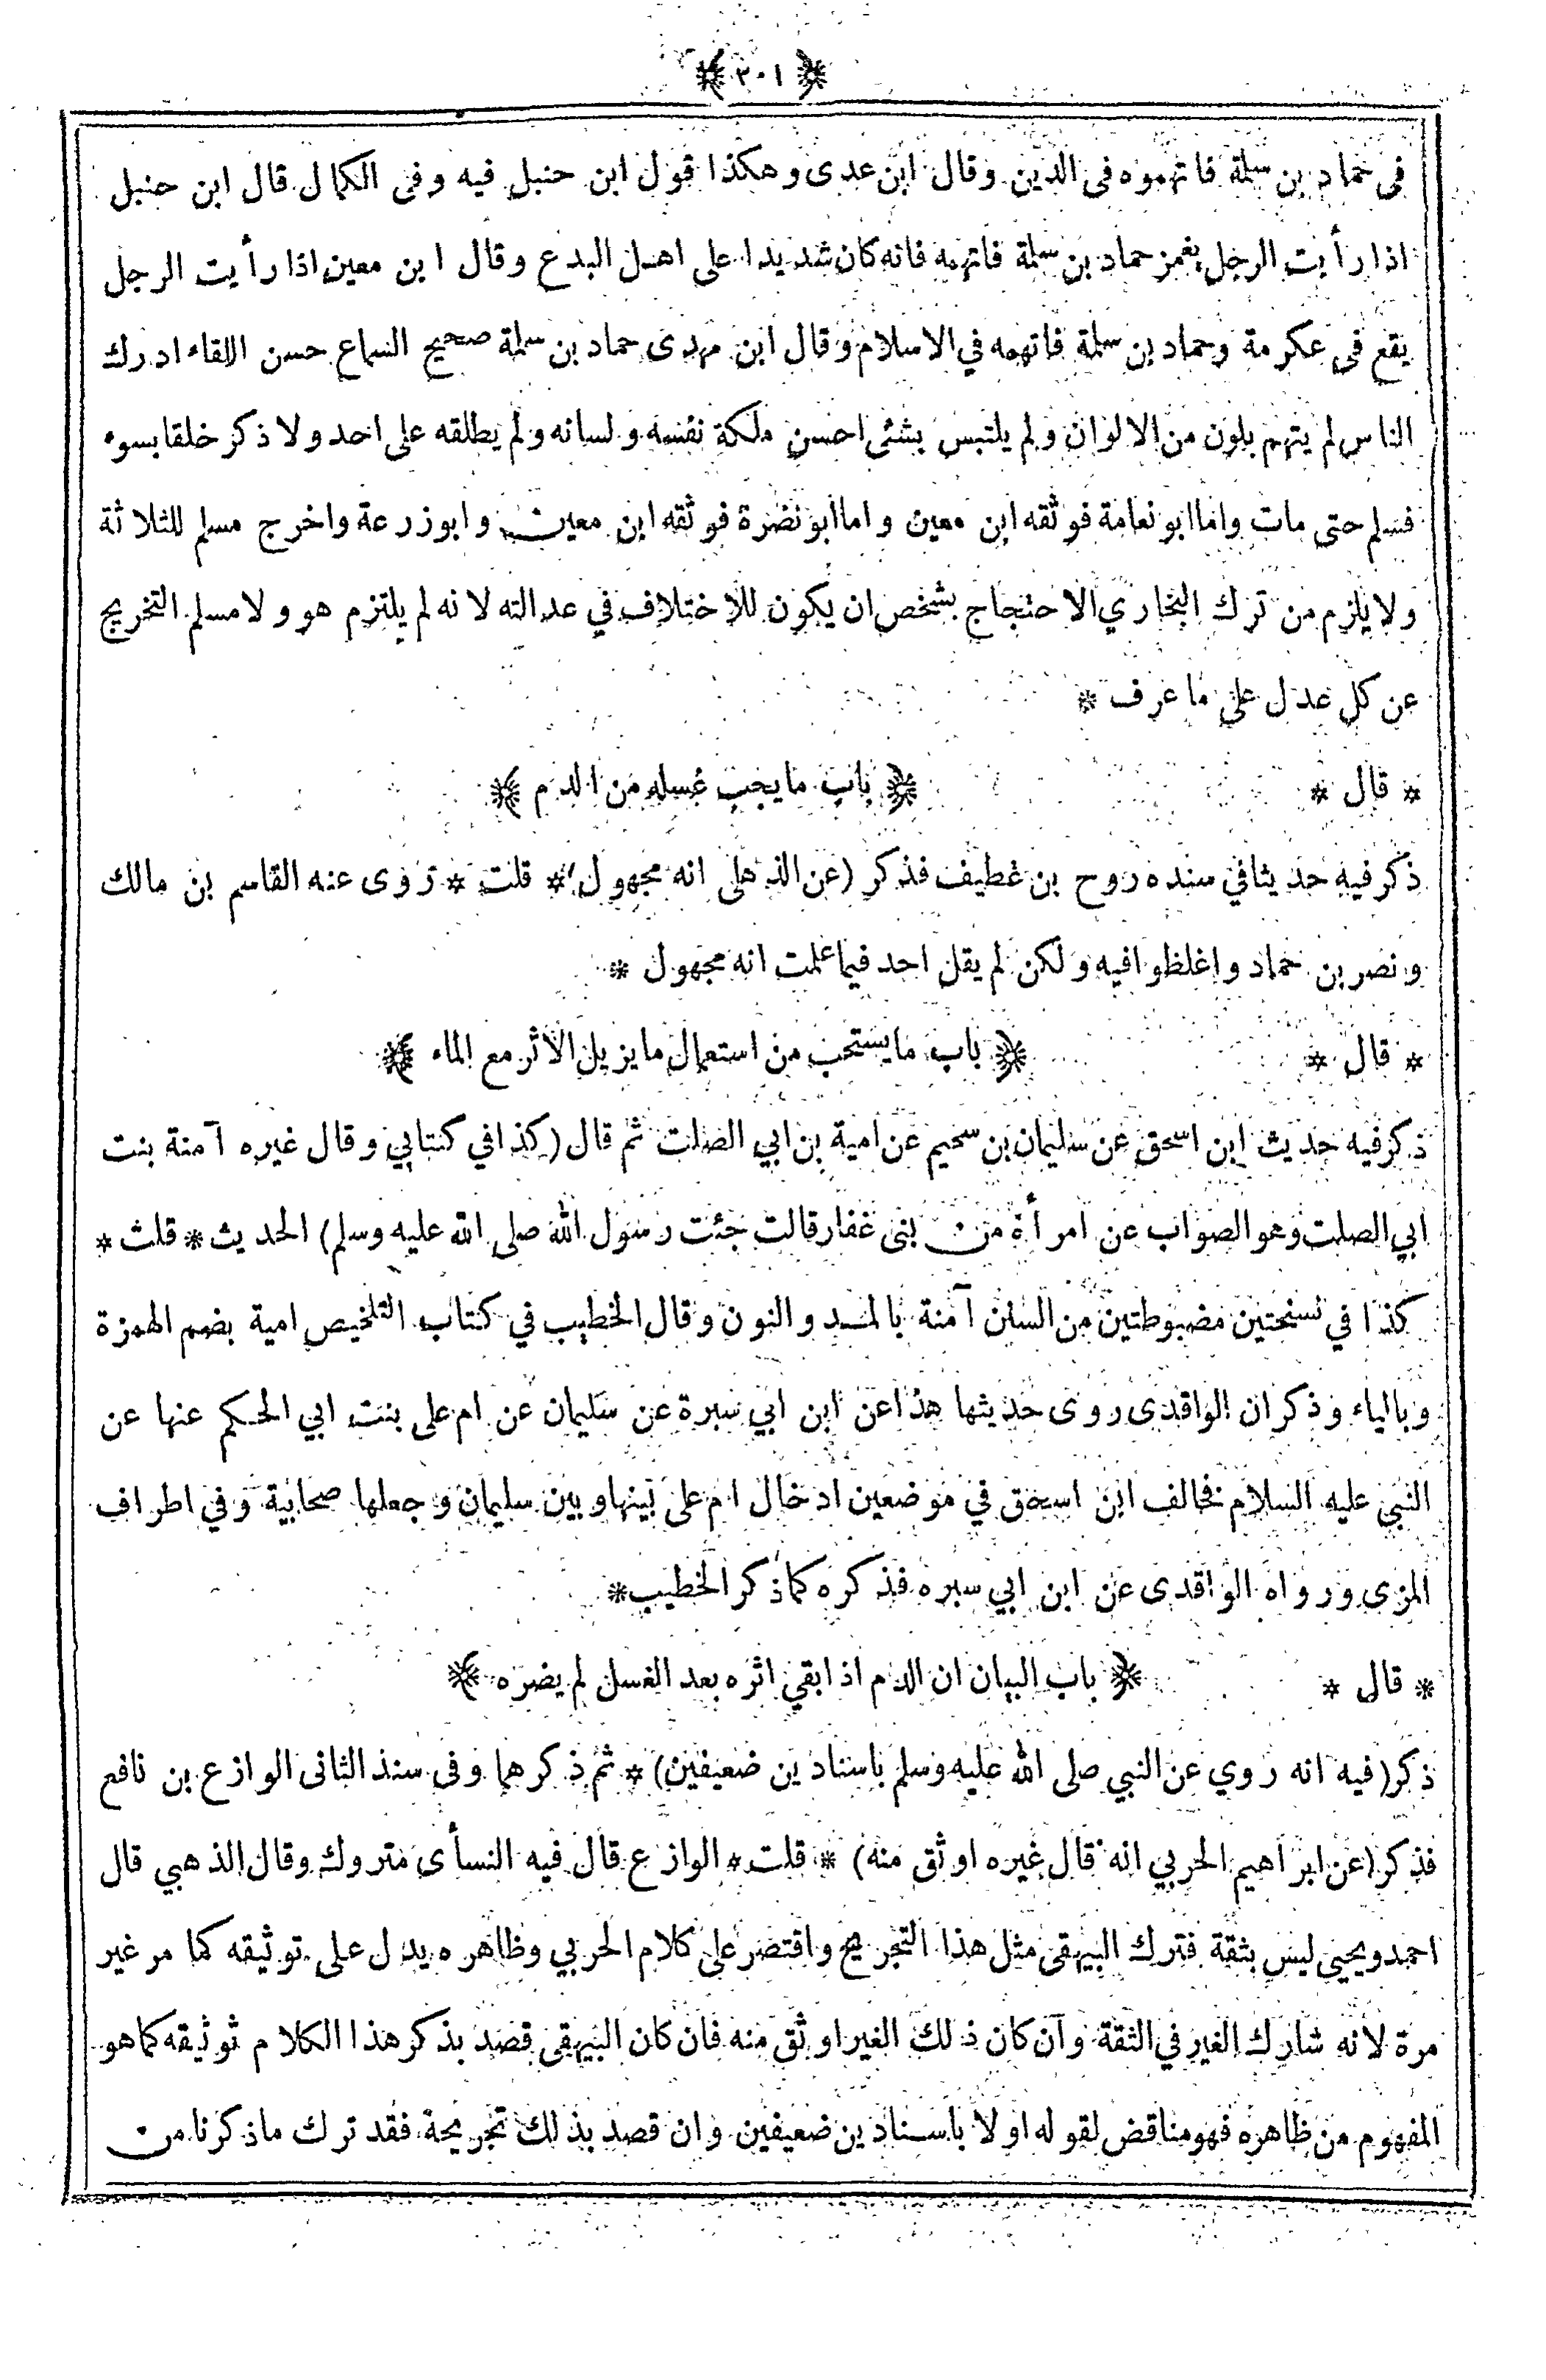 ﴿ ٢٠١ ﴾
فى حماد بن سلمة فاتهموه فى الدين وقال ابن عدى وهكذا قول ابن حنبل فيه وفى الكمال قال ابن حنبل
اذا رأيت الرجل يغمز حماد بن سلمة فاتهمه فانه كان شديدا على اهل البدع وقال ابن معين اذا رأيت الرجل
يقع فى عكرمة وحماد بن سلمة فاتهمه في الاسلام وقال ابن مهدى حماد بن سلمة صحيح السماع حسن اللقاء ادرك
الناس لم يتهم بلون من الالوان ولم يلتبس بشئى احسن ملكة نفسه ولسانه ولم يطلقه على احد ولا ذكر خلقا بسوء
فسلم حتى مات واما ابو نعامة فوثقه ابن معين واما ابو نضرة فوثقه ابن معين وابوزرعة واخرج مسلم للثلاثة
ولا يلزم من ترك البخاري الاحتجاج بشخص ان يكون للاختلاف في عدالته لانه لم يلتزم هو ولا مسلم التخريج
عن كل عدل على ما عرف *
* قال * ﴿ باب ما يجب غسله من الدم ﴾
ذكر فيه حديثا في سنده روح بن غطيف فذكر (عن الذهلى انه مجهول) * قلت * روى عنه القاسم بن مالك
ونصر بن حماد واغلظوا فيه ولكن لم يقل احد فيما علمت انه مجهول *
* قال * ﴿ باب ما يستحب من استعمال ما يزيل الأثر مع الماء ﴾
ذكر فيه حديث ابن اسحق عن سليمان بن سحيم عن امية بن ابي الصلت ثم قال (كذا في كتابي وقال غيره آمنة بنت
ابي الصلت وهو الصواب عن امرأة من بنى غفار قالت جئت رسول الله صلى الله عليه وسلم) الحديث * قلت *
كذا في نسختين مضبوطتين من السنن آمنة بالمد والنون وقال الخطيب في كتاب التلخيص امية بضم الهمزة
وبالياء وذكر ان الواقدى روى حديثها هذا عن ابن ابي سبرة عن سليمان عن ام على بنت ابي الحكم عنها عن
النبى عليه السلام فخالف ابن اسحق في موضعين ادخال ام على بينها وبين سليمان وجعلها صحابية وفي اطراف
المزى ورواه الواقدى عن ابن ابي سبره فذكره كما ذكر الخطيب *
* قال * ﴿ باب البيان ان الدم اذا بقي اثره بعد الغسل لم يضره ﴾
ذكر (فيه انه روي عن النبي صلى الله عليه وسلم باسنادين ضعيفين) * ثم ذكرهما وفى سند الثانى الوازع بن نافع
فذكر (عن ابراهيم الحربي انه قال غيره اوثق منه) * قلت * الوازع قال فيه النسأى متروك وقال الذهبي قال
احمد ويحيى ليس بثقة فترك البيهقى مثل هذا التجريح واقتصر على كلام الحربي وظاهره يدل على توثيقه كما مر غير
مرة لانه شارك الغير في الثقة وان كان ذلك الغير اوثق منه فان كان البيهقى قصد بذكر هذا الكلام توثيقه كما هو
المفهوم من ظاهره فهو مناقض لقوله اولا باسنادين ضعيفين وان قصد بذلك تجريحة فقد ترك ماذكرنا من